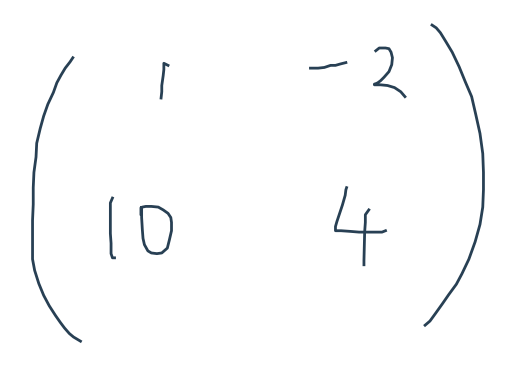 1 -2
10 4